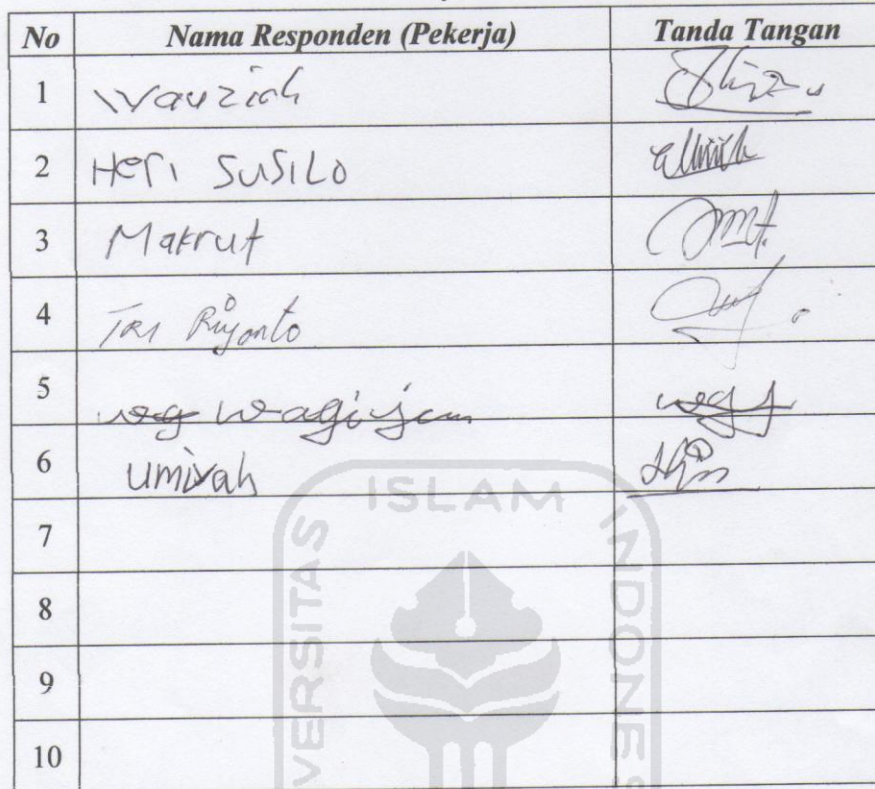 No Nama Responden (Pekerja) Tanda Tangan
1 Wauziah
2 Heri SUSILO
3 Makrut
4 TRI Riyanto
5 wagijem
6 Umiyah
7
8
9
10
UNIVERSITAS ISLAM INDONES